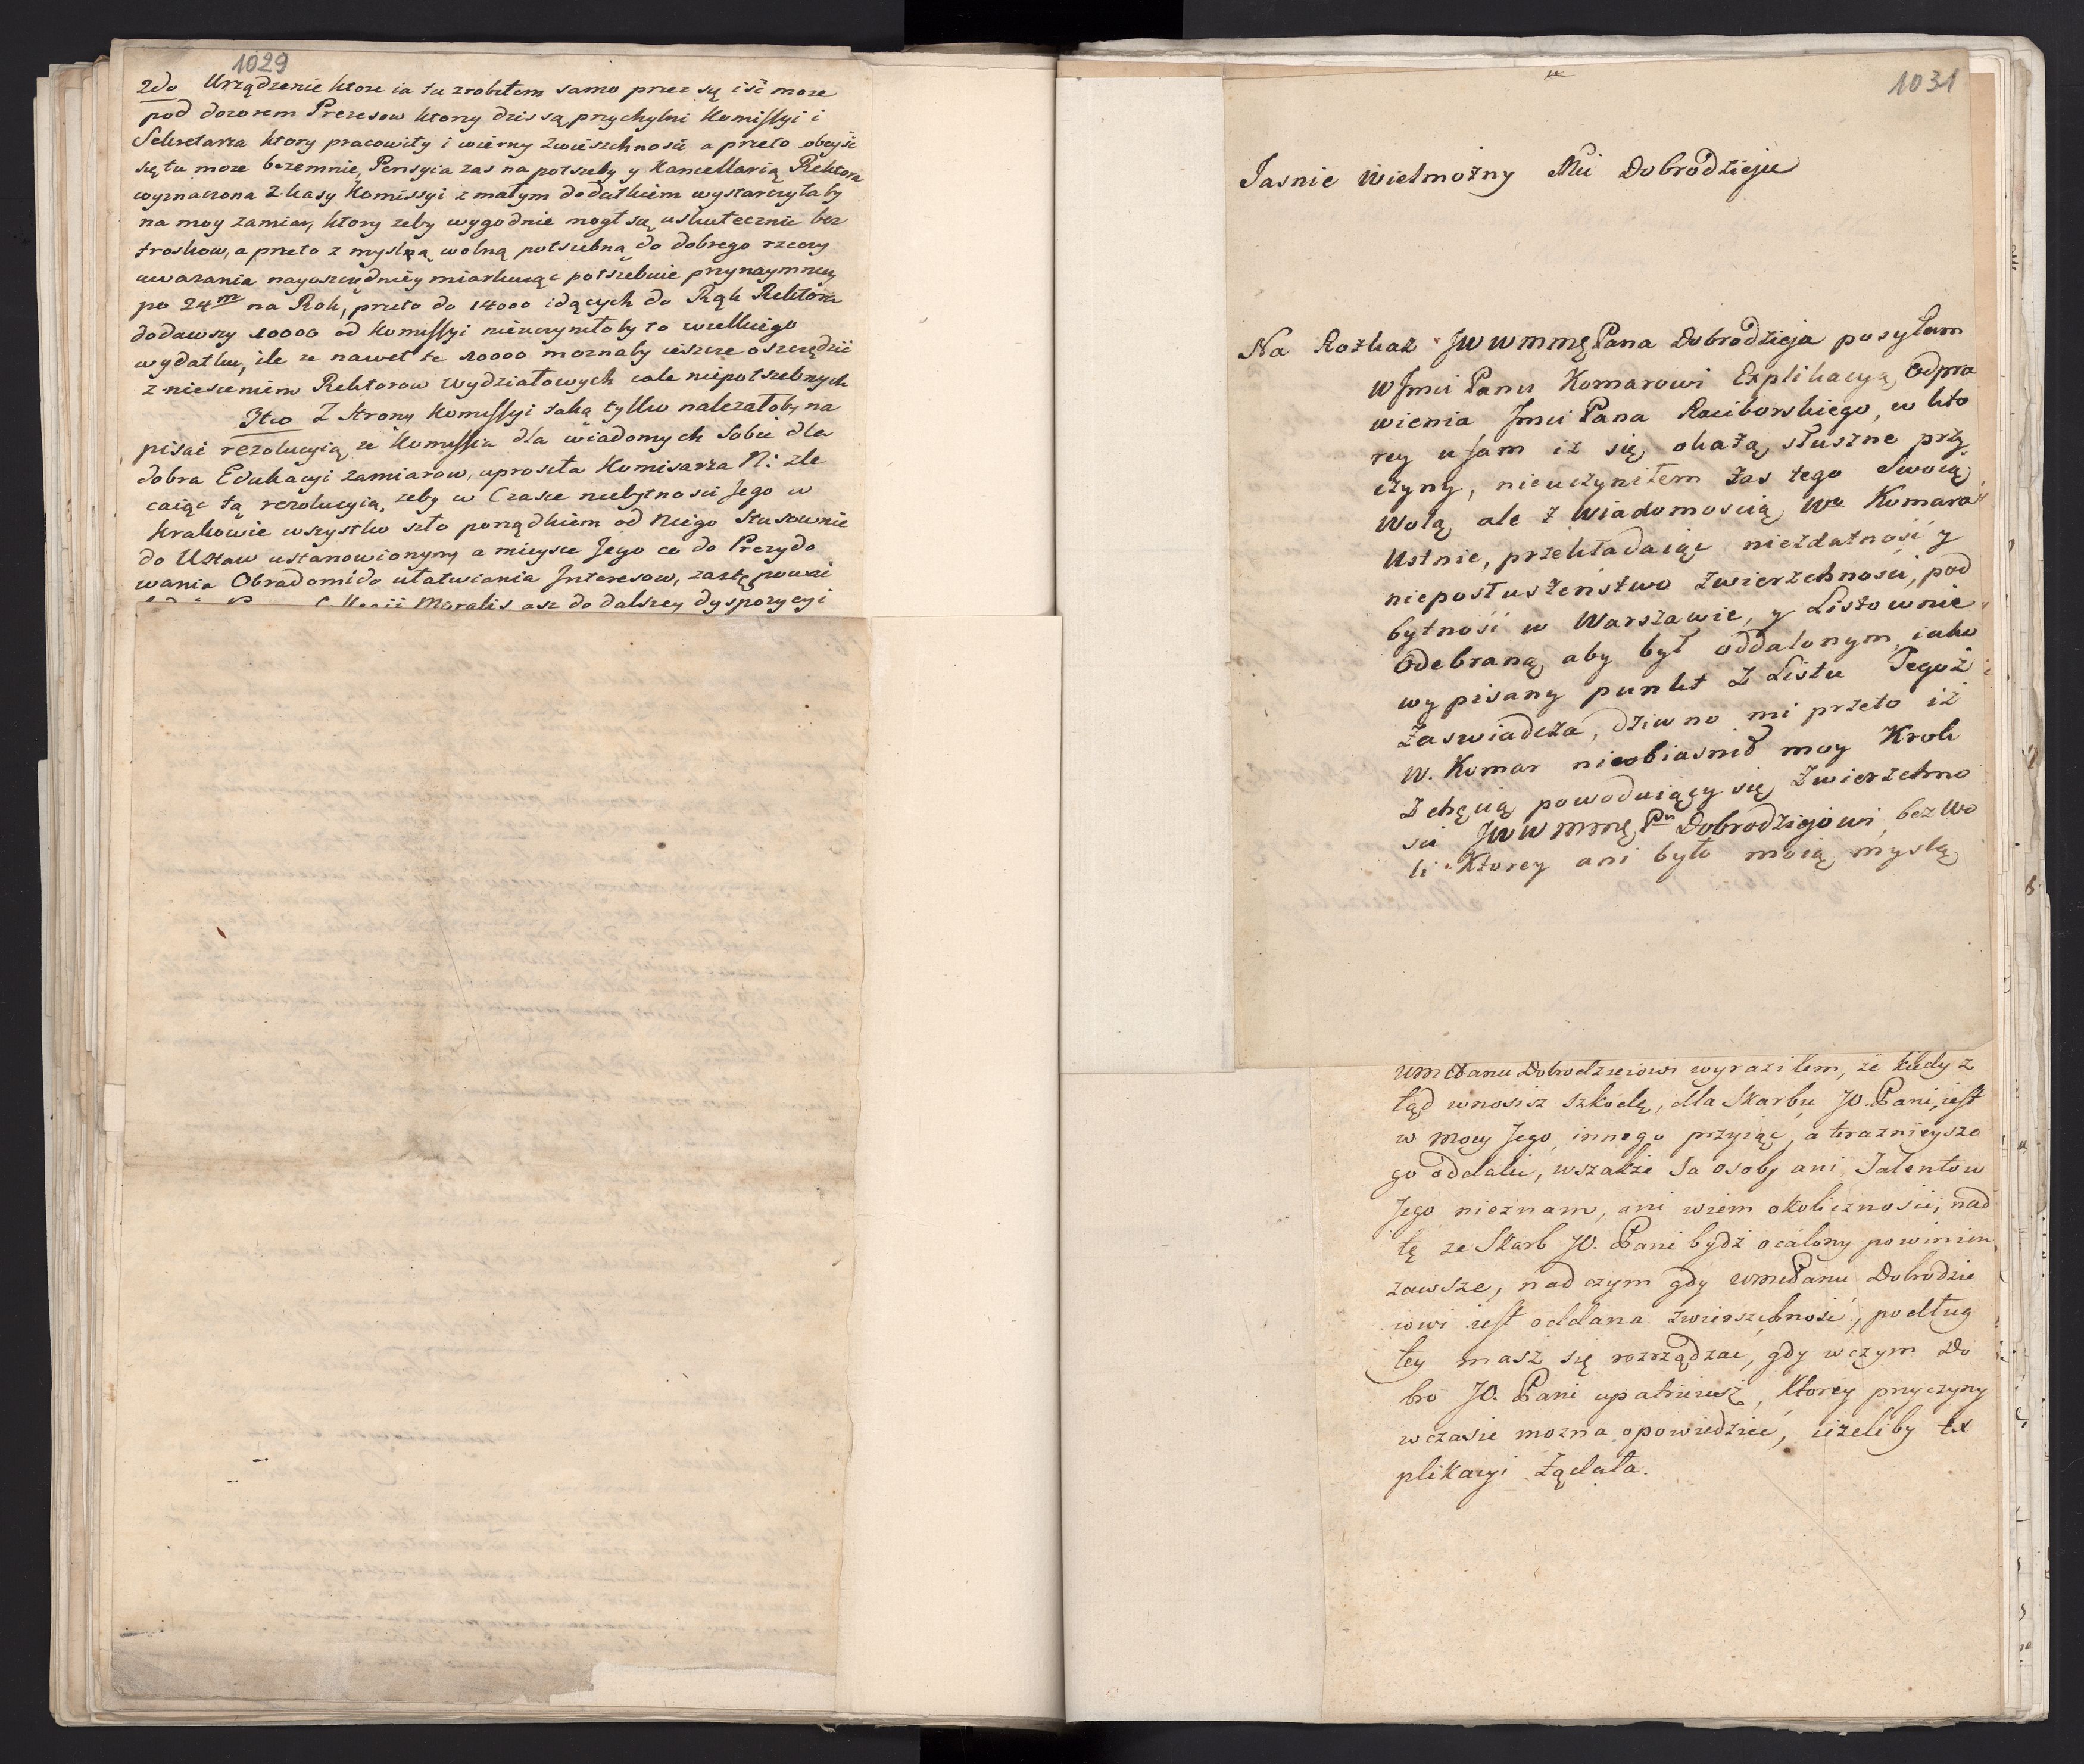 1029
2do Urządzenie ktore ia tu zrobiłem samo przez się iść moze
pod dozorem Prezesow ktorzy dzis są przychylni Komissyi i
Sekretarza ktory pracowity i wierny Zwierzchnosci a przeto obeyść
się tu moze bezemnie, Pensyia zas na potrzeby y Kancellarią Rektora
wyznaczona z kasy Komissyi z małym dodatkiem wystarczyłaby
na moy zamiar, ktory zeby wygodnie mogł się uskutecznić bez
troskow, a przeto z myslą wolną potrzebną do dobrego rzeczy
uwazania nayoszczędniey miarkuiąc potrzebuie przynaymniey
po 24m na Rok, przeto do 14000 idących do Rąk Rektora
dodawszy 10000 od Komissyi nieuczyniłoby to wielkiego
wydatku, ile ze nawet te 10000 moznaby ieszcze oszczędzić
zniesieniem Rektorow Wydziałowych cale niepotrzebnych
3tio Z Strony Komissyi taką tylko nalezałoby na
pisać rezolucyią, ze Komissia dla wiadomych Sobie dla
dobra Edukacyi zamiarow, uprosiła Komisarza N: zle
caiąc tą rezolucyią, zeby w Czasie niebytnosci Jego w
Krakowie wszystko szło porządkiem od Niego Stosownie
do Ustaw ustanowionym, a mieysce Jego co do Prezydo
wania Obradom i do ułatwiania Interesow, zastępował
Collegii Moralis asz do dalszey dyspozycyi
1031
Jasnie Wielmozny Mći Dobrodzieju
Na Rozkaz JWWMMę Pana Dobrodzieja posyłam
WJmći Panu Komarowi Explikacyą Odpra
wienia Jmći Pana Raciborskiego, w kto
rey ufam iz się okazą słuszne przy
czyny, nieuczyniłem zas tego Swoią
Wolą ale z Wiadomoscią We Komara
Ustnie, przekładaiąc niezdatność y
nieposłuszenstwo Zwierzchnosci, pod
bytność w Warszawie, y Listownie
Odebraną aby był oddalonym, iako
wypisany punkt z Listu Tegoż
Zaswiadcza, dziwno mi przeto iż
W. Komar nieobiasnił moy Krok
z chęcią powoduiący się Zwierzchno
sci JWWMMę Pu Dobrodziejowi, bez Wo
li Ktorey ani było moią myslą
WMćPanu Dobrodzieiowi wyraziłem, że kiedy z
tąd wnosisz szkodę, dla Skarbu JO. Pani, iest
w mocy Jego innego przyiąć, a teraznieysze
go oddalić, wszakże Ja osoby ani Talentow
Jego nieznam, ani wiem okoliczności, nad
tę ze Skarb JO. Pani bydź ocalony powinien
zawsze, nad czym gdy WMćPanu Dobrodzie
iowi iest oddana Zwierzchność, podług
tey masz się rozrządzać, gdy w czym Do
bro JO. Pani upatruiesz, Ktorey przyczyny
w czasie mozna opowiedzieć, ieżeliby ex
plikacyi Żądała.